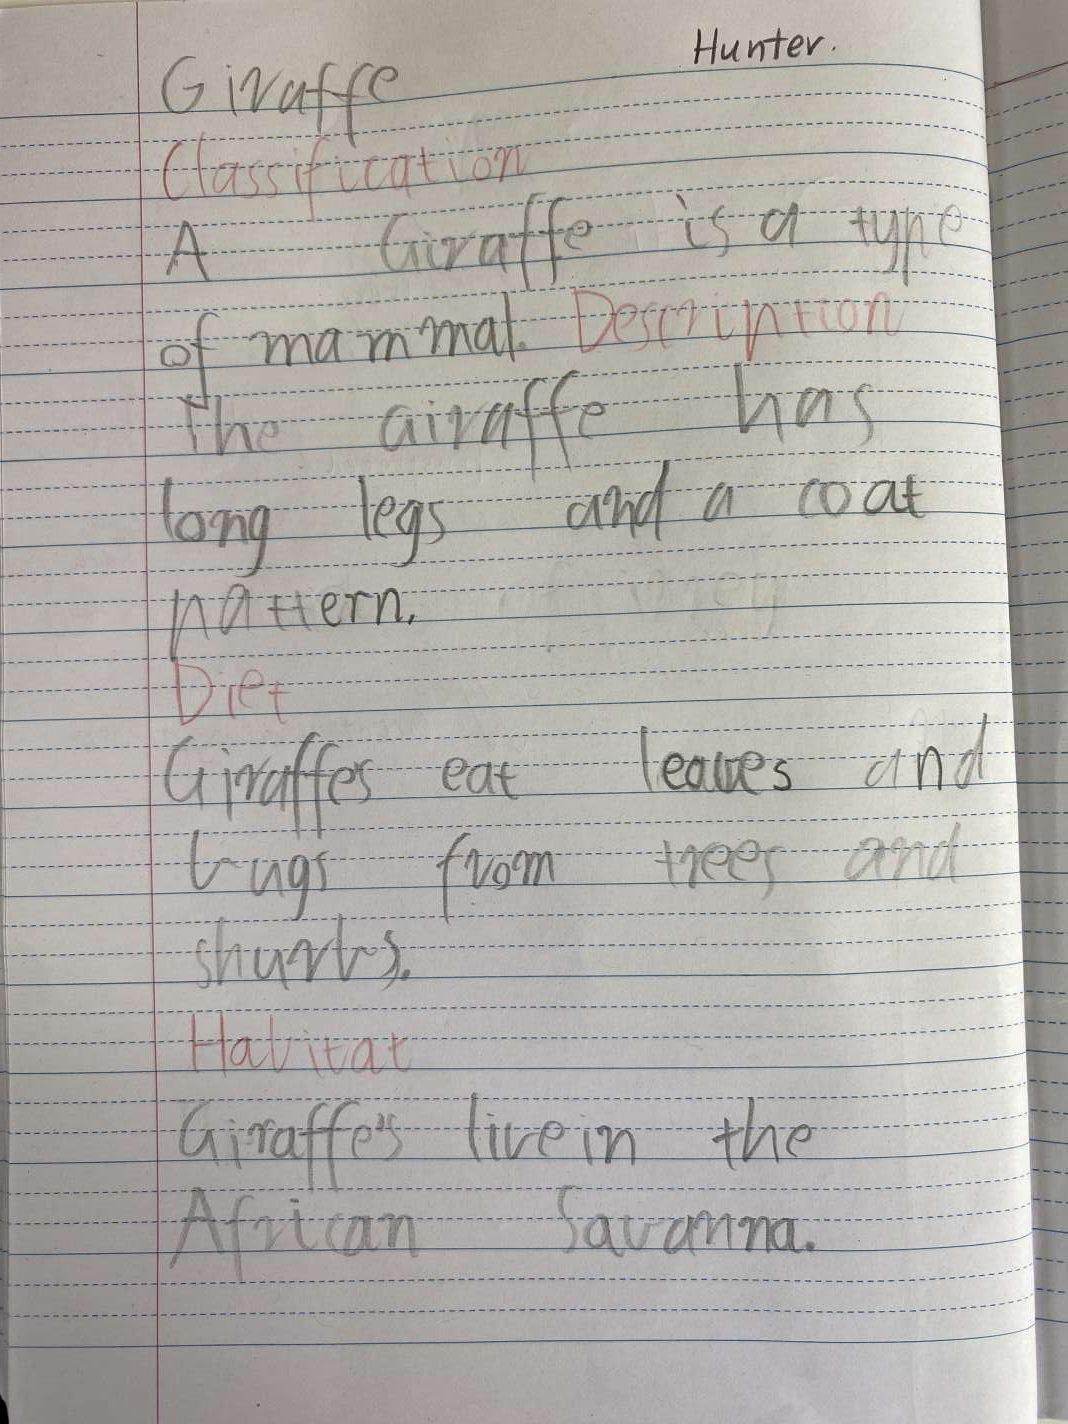 Hunter.
Giraffe
Classification
A Giraffe is a type
of mammal. Description
The Giraffe has
long legs and a coat
pattern.
Diet
Giraffes eat leaves and
bugs from trees and
shurbs.
Habitat
Giraffe's live in the
African Savanna.